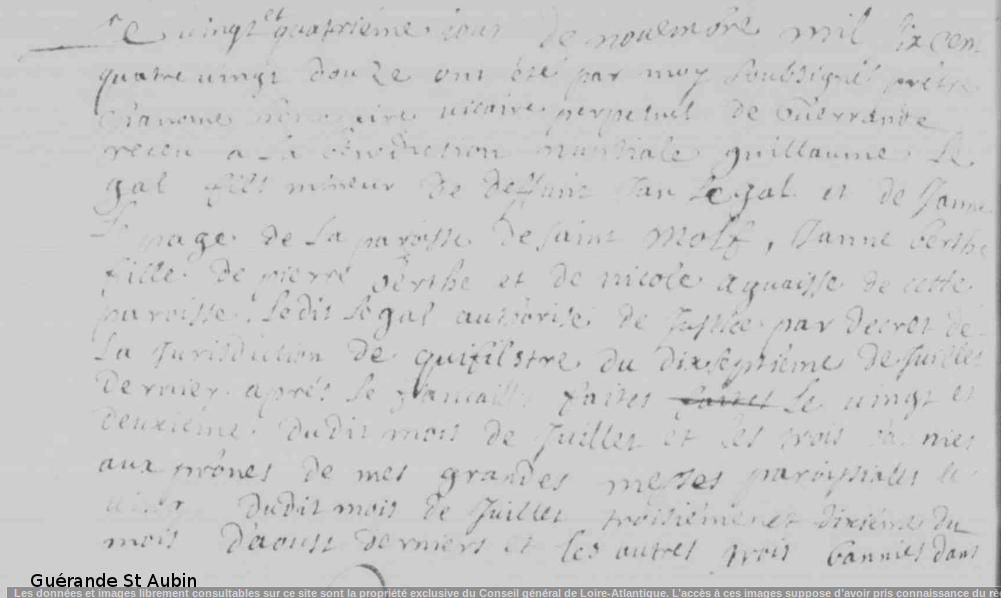 Le vingt et quatriéme jour de novembre mil six cent
quatre vingt douze ont été par moy soubsigné prêtre
vicaire perpetuel de Guerrande
receu a la bénédiction nuptiale guillaume Le
gal fils mineur de deffunt Jan Le gal et de Janne
Le page de la paroisse de saint Molf, Janne berthe
fille de pierre berthe et de nicole aguaisse de cette
paroisse, Ledit Le gal autorisé de Justice par decret de
La Jurisdiction de quifilstre du dixseptiéme de Juillet
dernier aprés le fiancailles faites le vingt et
deuxiéme dudit mois de Juillet et les trois bannies
aux prônes de mes grandes messes paroissialles le
dudit mois de Juillet troisiéme et dixiéme du
mois d'aoust derniers et les autres trois bannies dans
Guérande St Aubin
Les données et images librement consultables sur ce site sont la propriété exclusive du Conseil général de Loire-Atlantique. L'accès à ces images suppose d'avoir pris connaissance du re